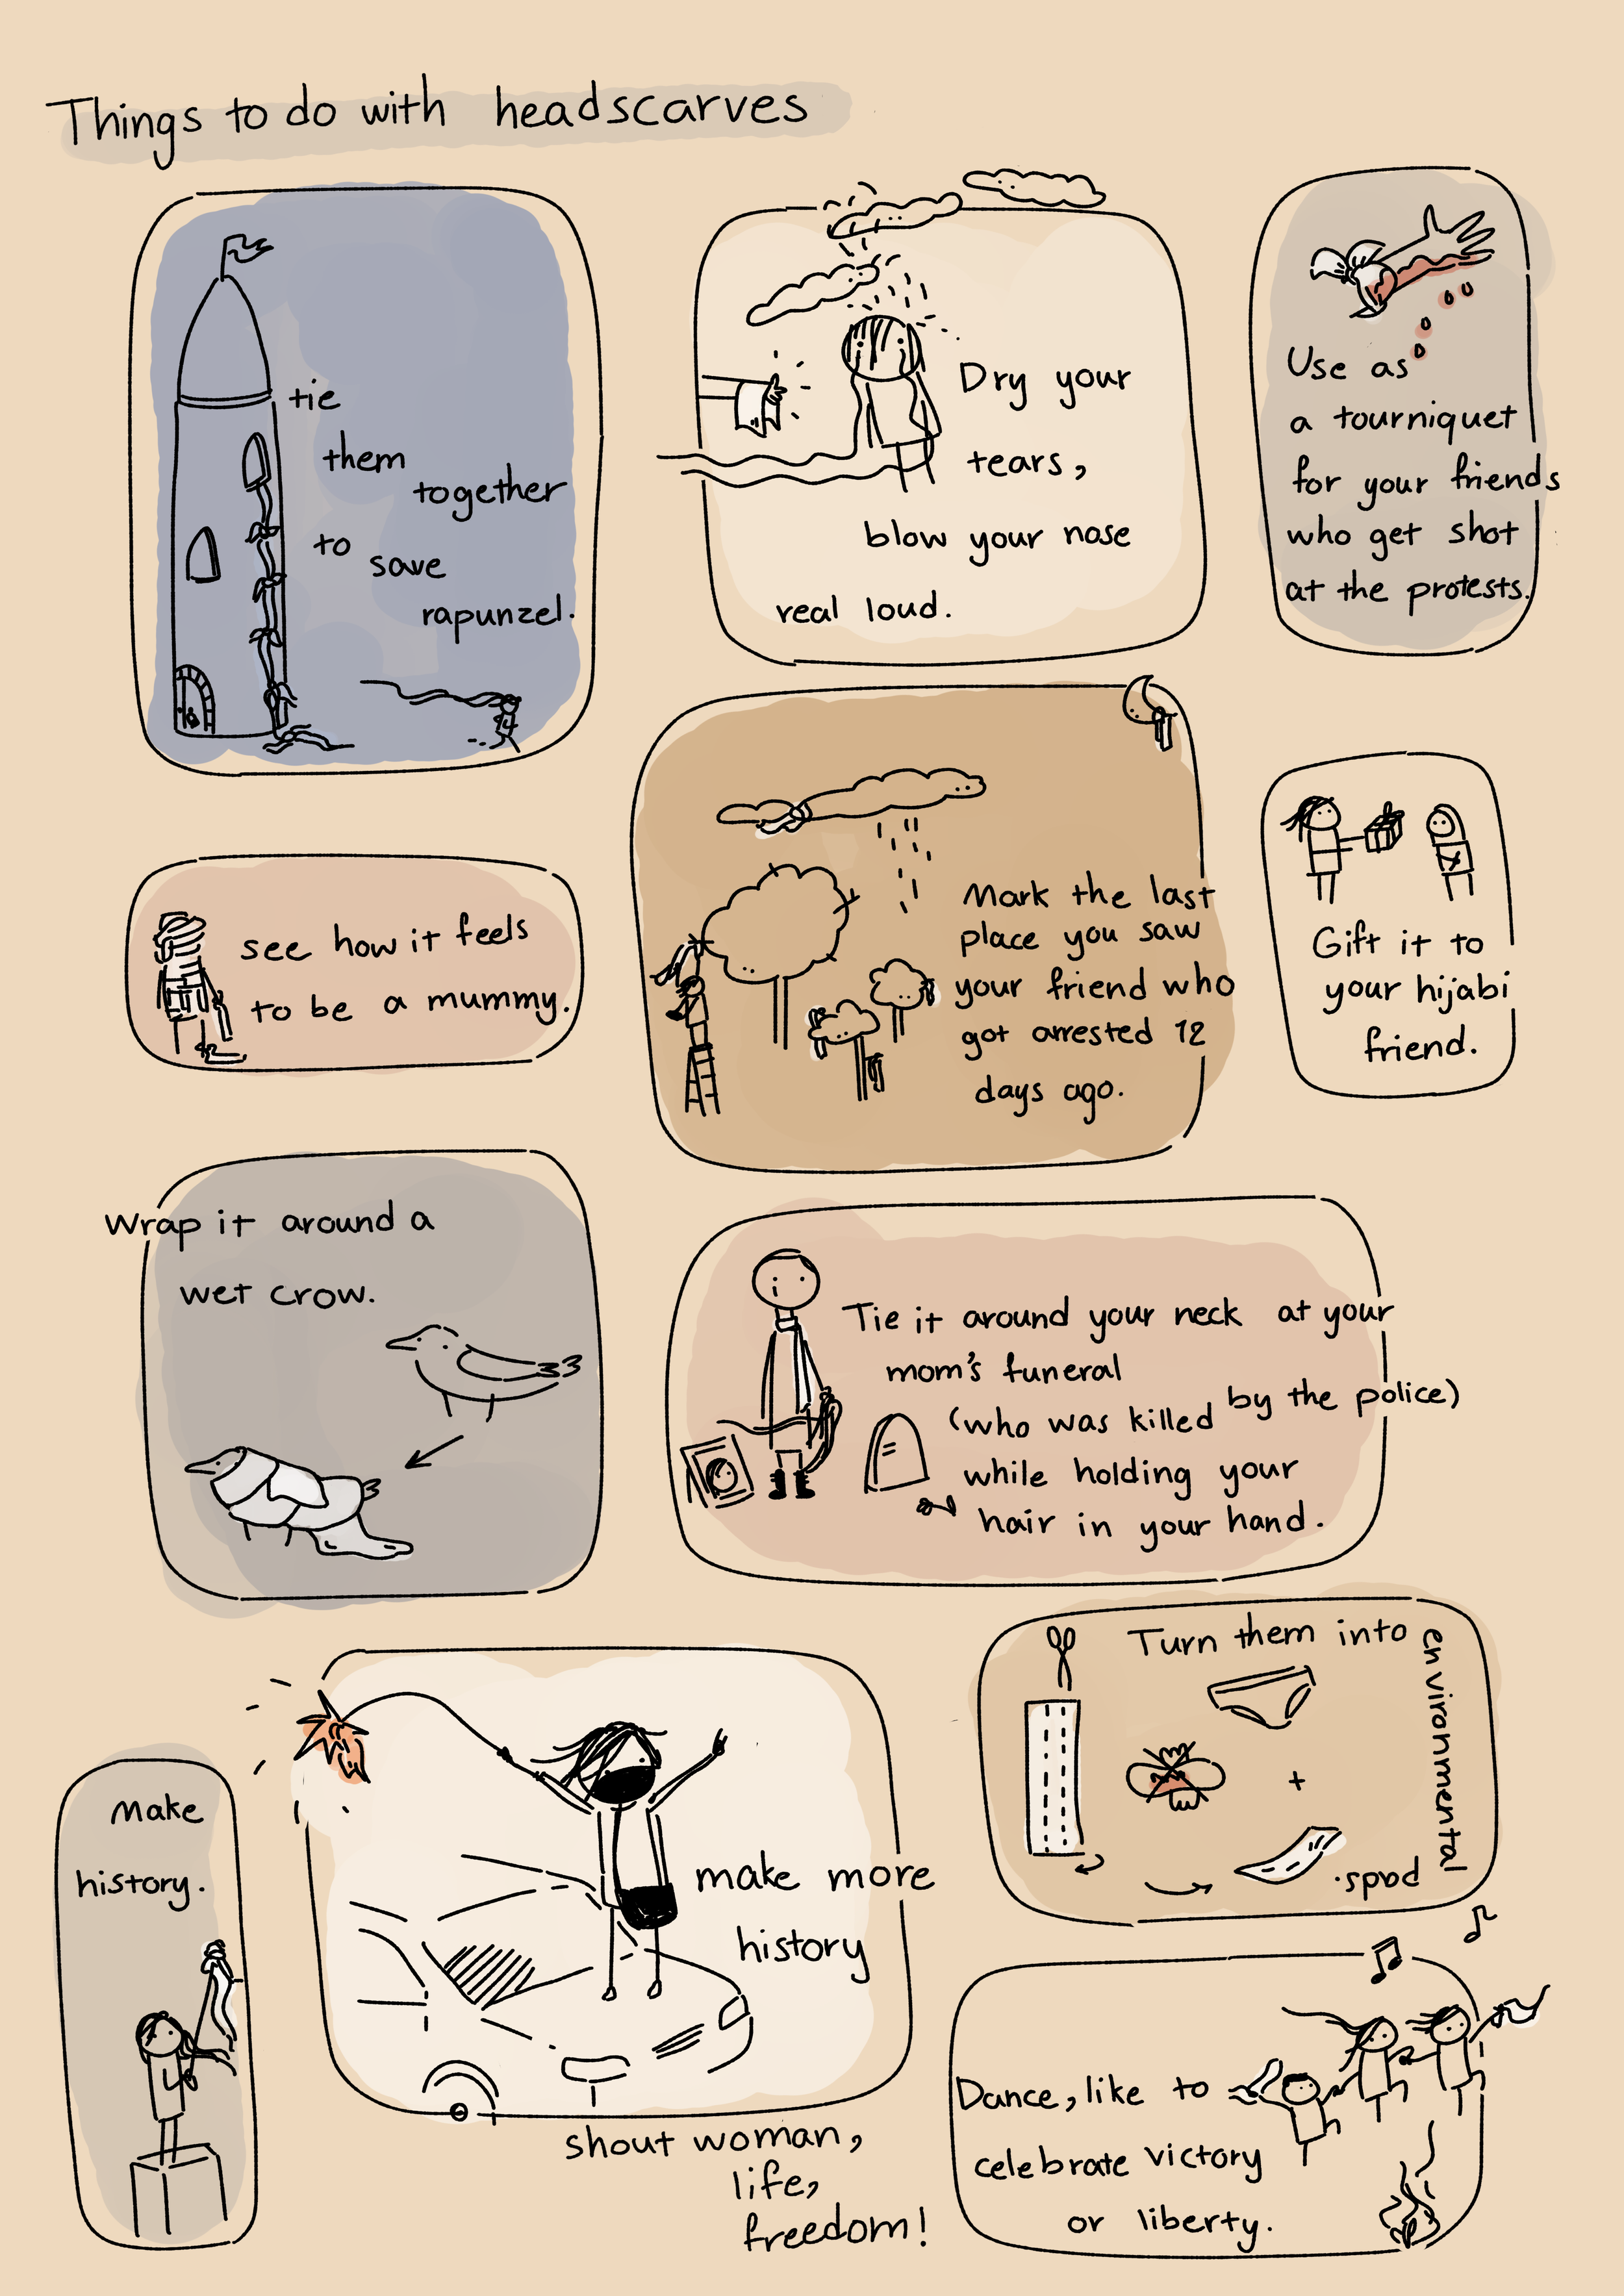 Things to do with headscarves
tie
them
together
to
save
rapunzel.
Dry your
tears,
blow your nose
real loud.
Use as
a tourniquet
for your friends
who get shot
at the protests.
see how it feels
to be a mummy.
Mark the last
place you saw
your friend who
got arrested 12
days ago.
Gift it to
your hijabi
friend.
Wrap it around a
wet crow.
Tie it around your neck at your
mom's funeral
(who was killed by the police)
while holding your
hair in your hand.
Turn them into
environmental
pads.
Make
history.
make more
history
shout woman,
life,
freedom!
Dance, like to
celebrate victory
or liberty.